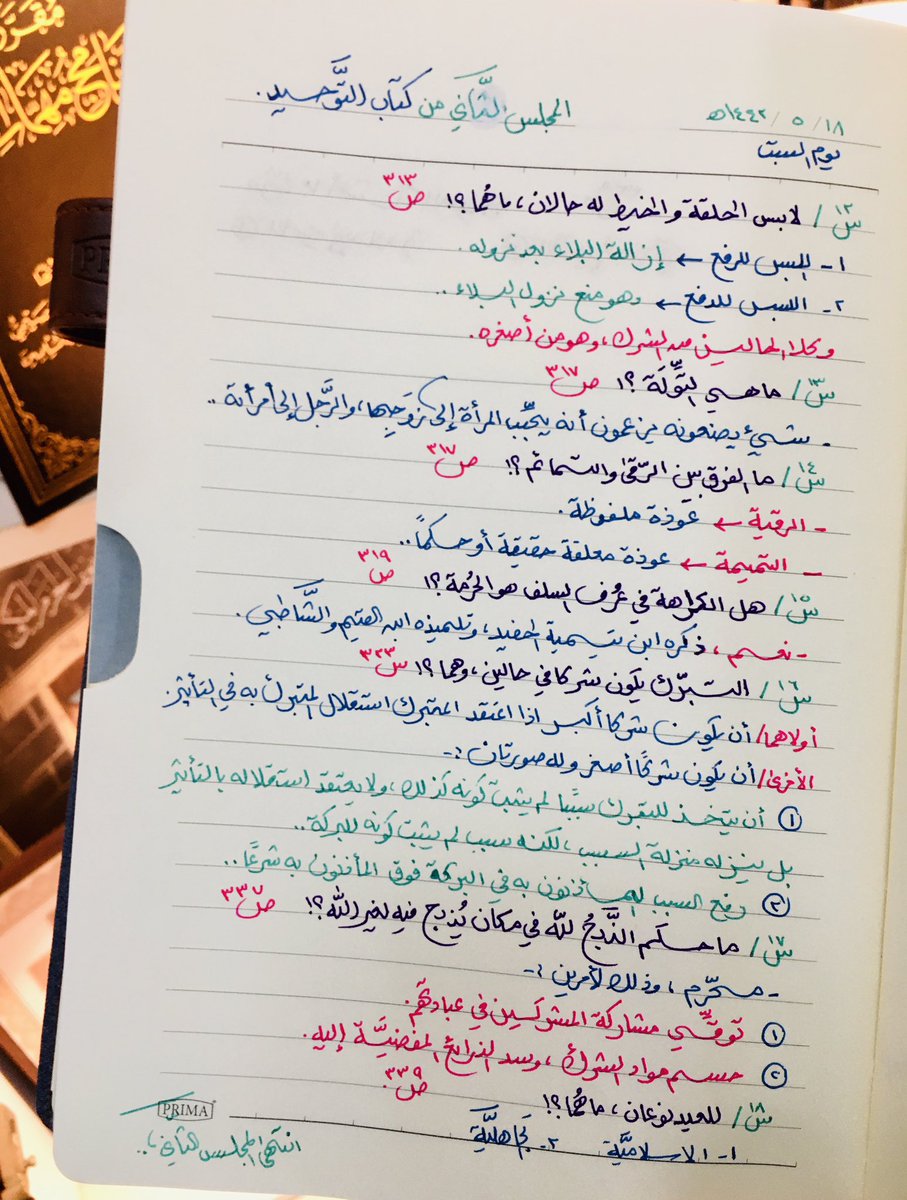 ١٨ / ٥ / ١٤٤٢هـ
المجلس الثَّاني من كتاب التَّوحيد.
يوم السبت
س١٢/ لابس الحلقة والخيط له حالان، ما هُما؟! ص٣١٣
١- اللبس للرفع ← إزالة البلاء بعد نزوله.
٢- اللبس للدفع ← وهو منع نزول البلاء..
وكلا الحالين من الشرك، وهو من أصغره.
س١٣/ ما هي التِّوَلَة؟! ص٣١٧
- شيء يصنعونه يزعمون أنه يحبِّب المرأة إلى زوجِها، والرَّجل إلى امرأته..
س١٤/ ما الفرق بين الرّقى والتمائم؟! ص٣١٧
- الرقية ← عُوذة ملفوظة.
- التميمة ← عوذة معلقة حقيقة أو حكمًا..
س١٥/ هل الكراهة في عُرف السلف هو الحُرمة؟! ص٣١٩
- نعم، ذكره ابن تيمية الحفيد، وتلميذه ابن القيم والشَّاطبي.
س١٦/ التبرّك يكون شركا في حالين، وهما؟! س٣٢٣
أولاهما/ أن يكون شركا أكبر اذا اعتقد المتبرك استقلال المتبرك به في التأثير.
الأخرى/ أن يكون شركًا أصغر وله صورتان :-
① أن يتخذ للتبرك سببًا لم يثبت كونه كذلك، ولا يعتقد استقلاله بالتأثير
بل ينزله منزلة السبب، لكنه سبب لم يثبت كونه للبركة..
② رفع السبب المأذون به في البركة فوق المأذون به شرعًا..
س١٧/ ما حكم الذَّبح للّٰه في مكان يُذبح فيه لغير اللّٰه؟! ص٣٣٧
- محرّم، وذلك لأمرين :-
① توقّي مشاركة المشركين في عبادتهم.
② حسم مواد الشرك، وسد الذرائع المفضيَّة إليه.
س١٨/ للعيد نوعان، ما هُما؟! ص٣٣٩
١- الاسلاميَّة ٢- جَاهليَّة
PRIMA
انتهى المجلس الثاني..